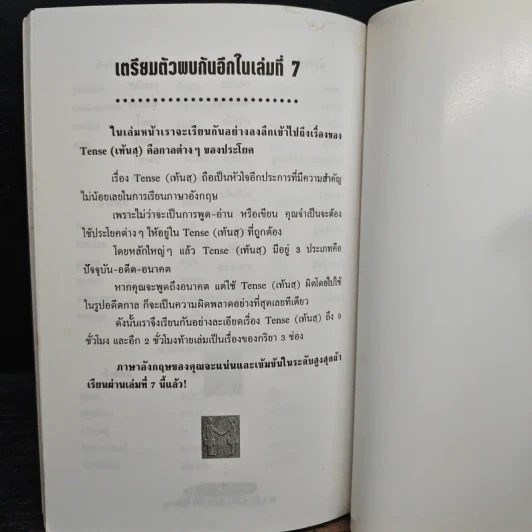 เตรียมตัวพบกันอีกในเล่มที่ 7
ในเล่มหน้าเราจะเรียนกันอย่างลงลึกเข้าไปถึงเรื่องของ
Tense (เท้นสฺ) คือกาลต่างๆ ของประโยค
เรื่อง Tense (เท้นสฺ) ถือเป็นหัวใจอีกประการที่มีความสำคัญ
ไม่น้อยเลยในการเรียนภาษาอังกฤษ
เพราะไม่ว่าจะเป็นการพูด-อ่าน หรือเขียน คุณจำเป็นจะต้อง
ใช้ประโยคต่างๆ ให้อยู่ใน Tense (เท้นสฺ) ที่ถูกต้อง
โดยหลักใหญ่ๆ แล้ว Tense (เท้นสฺ) มีอยู่ 3 ประเภทคือ
ปัจจุบัน-อดีต-อนาคต
หากคุณจะพูดถึงอนาคต แต่ใช้ Tense (เท้นสฺ) ผิดโดยไปใช้
ในรูปอดีตกาล ก็จะเป็นความผิดพลาดอย่างที่สุดเลยทีเดียว
ดังนั้นเราจึงเรียนกันอย่างละเอียดเรื่อง Tense (เท้นสฺ) ถึง 9
ชั่วโมง และอีก 2 ชั่วโมงท้ายเล่มเป็นเรื่องของกริยา 3 ช่อง
ภาษาอังกฤษของคุณจะแน่นและเข้มข้นในระดับสูงสุดถ้า
เรียนผ่านเล่มที่ 7 นี้แล้ว!